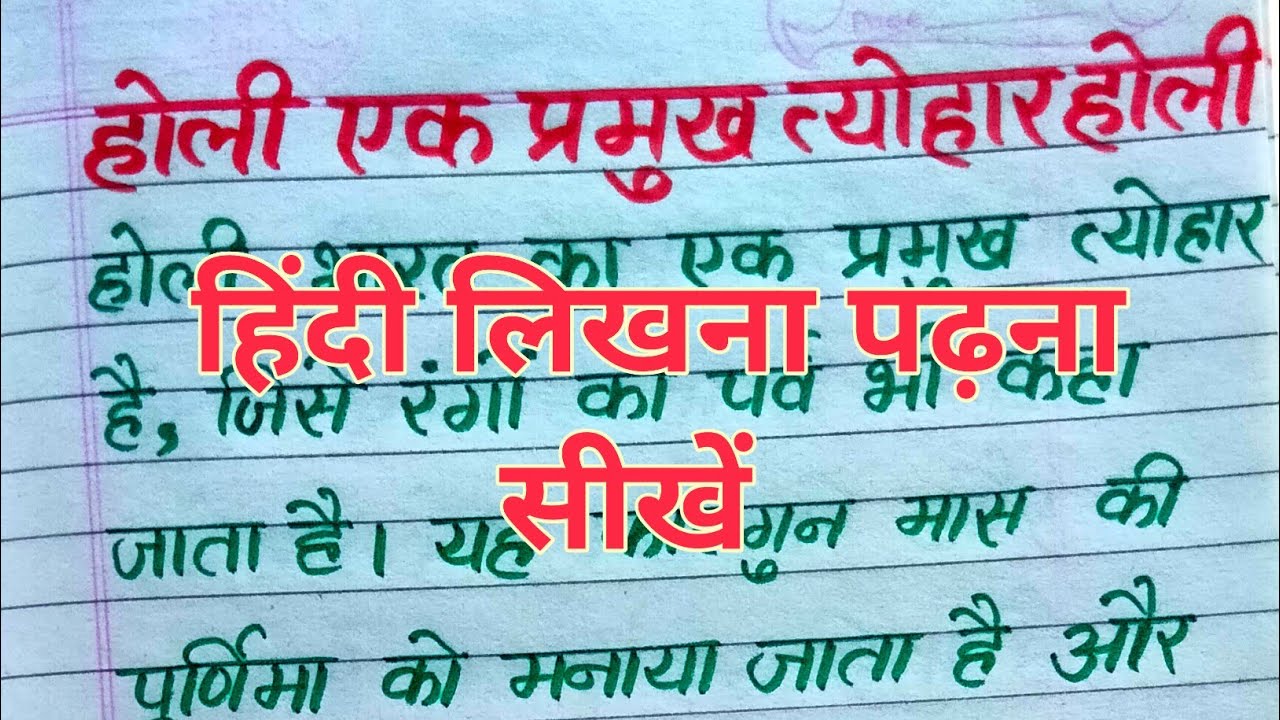 होली एक प्रमुख त्योहार होली
होली भारत का एक प्रमुख त्योहार
हिंदी लिखना पढ़ना
है, जिसे रंगों का पर्व भी कहा
सीखें
जाता है। यह मास की
पूर्णिमा को मनाया जाता है और